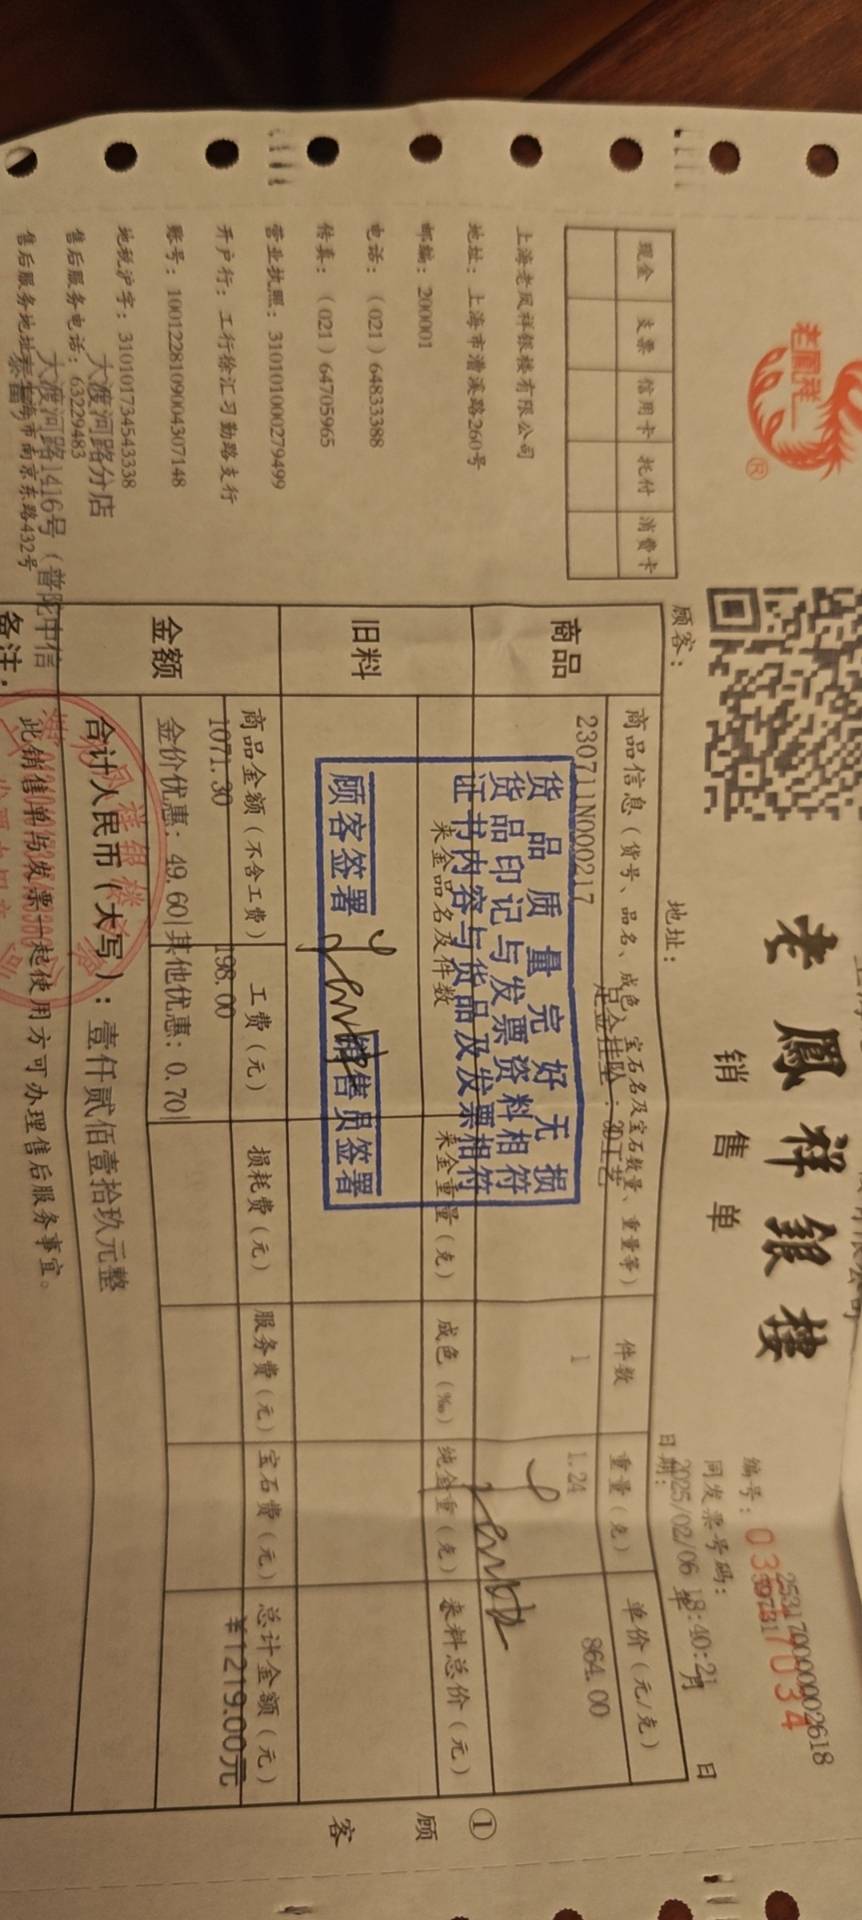 老鳳祥
®
老鳳祥銀樓
销售单
编号:
2531700000002618
同发票号码:
日期:
2025/02/06 18:40:21
年 月 日
现金 支票 信用卡 托付 消费卡
上海老凤祥银楼有限公司
地址:上海市漕溪路260号
邮编:200001
电话:(021)64833388
传真:(021)64705965
营业执照:310101000279499
开户行:工行徐汇习勤路支行
账号:1001228109004307148
地税沪字:310101734543338
大渡河路分店
售后服务电话:63229483
大渡河路1416号(普陀中信
售后服务地址:上海市南京东路432号
顾客: 地址:
商品
商品信息(货号、品名、成色、宝石名及宝石数量、重量等) 件数 重量(克) 单价(元/克)
足金挂坠:3D工艺
230711N000217 1 1.24 864.00
货品质量完好无损
货品印记与发票资料相符
证书内容与货品及发票相符
顾客签署 销售员签署
旧料
来金品名及件数 来金重量(克) 成色(‰) 纯金重(克) 来料总价(元)
金额
商品金额(不含工费) 工费(元) 损耗费(元) 服务费(元) 宝石费(元) 总计金额(元)
1071.30 198.00 ¥1219.00元
金价优惠: 49.60| 其他优惠: 0.70|
合计人民币(大写):壹仟贰佰壹拾玖元整
备注:
此销售单与发票一起使用方可办理售后服务事宜。
① 顾客